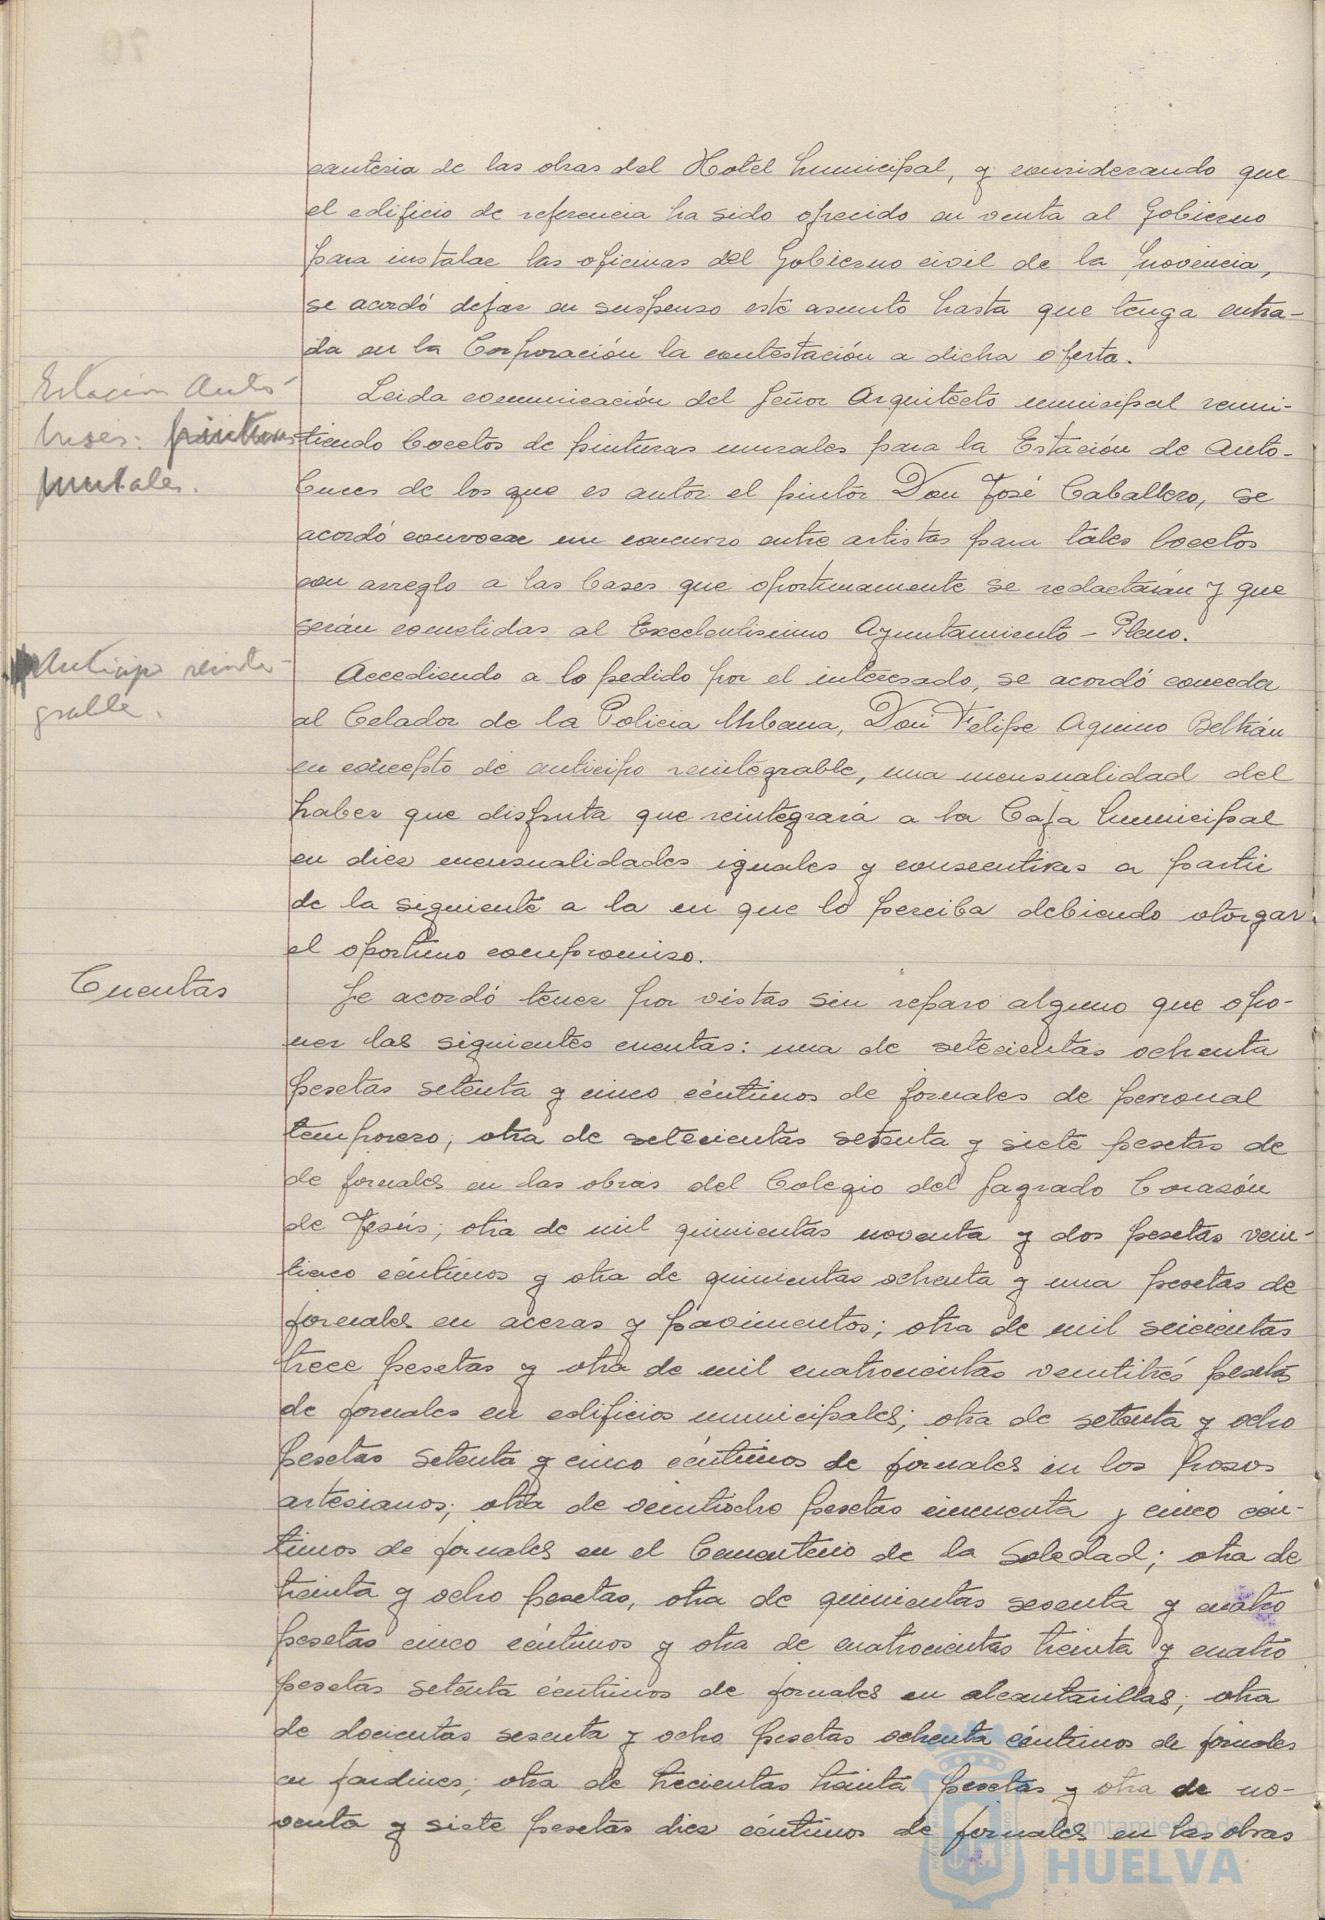 cantería de las obras del Hotel Municipal, y considerando que
el edificio de referencia ha sido ofrecido en venta al Gobierno
para instalar las oficinas del Gobierno civil de la Provincia,
se acordó dejar en suspenso este asunto hasta que tenga entra-
da en la Corporación la contestación a dicha oferta.
Estación Auto-
buses: pinturas
murales.
Leida comunicación del Señor Arquitecto municipal remi-
tiendo bocetos de pinturas murales para la Estación de Auto-
buses de los que es autor el pintor Don José Caballero, se
acordó convocar un concurso entre artistas para tales bocetos
con arreglo a las bases que oportunamente se redactarán y que
serán sometidas al Excelentisimo Ayuntamiento-Pleno.
Anticipo reinte-
grable.
Accediendo a lo pedido por el interesado, se acordó conceder
al Celador de la Policia Urbana, Don Felipe Aquino Beltrán
en concepto de anticipo reintegrable, una mensualidad del
haber que disfruta que reintegrará a la Caja Municipal
en diez mensualidades iguales y consecutivas a partir
de la siguiente a la en que lo perciba debiendo otorgar
el oportuno compromiso.
Cuentas
Se acordó tener por vistas sin reparo alguno que opo-
ner las siguientes cuentas: una de setecientas ochenta
pesetas setenta y cinco céntimos de jornales de personal
temporero; otra de setecientas setenta y siete pesetas de
de jornales en las obras del Colegio del Sagrado Corazón
de Jesús; otra de mil quinientas noventa y dos pesetas vein-
ticinco céntimos y otra de quinientas ochenta y una pesetas de
jornales en aceras y pavimentos; otra de mil seicientas
trece pesetas y otra de mil cuatrocientas veintitrés pesetas
de jornales en edificios municipales; otra de setenta y ocho
pesetas setenta y cinco céntimos de jornales en los pozos
artesianos; otra de veintiocho pesetas cincuenta y cinco cén-
timos de jornales en el Cementerio de la Soledad; otra de
treinta y ocho pesetas, otra de quinientas sesenta y cuatro
pesetas cinco céntimos y otra de cuatrocientas treinta y cuatro
pesetas setenta céntimos de jornales en alcantarillas; otra
de docientas sesenta y ocho pesetas ochenta céntimos de jornales
en jardines; otra de trecientas treinta pesetas y otra de no-
venta y siete pesetas diez céntimos de jornales en las obras
Ayuntamiento de
HUELVA